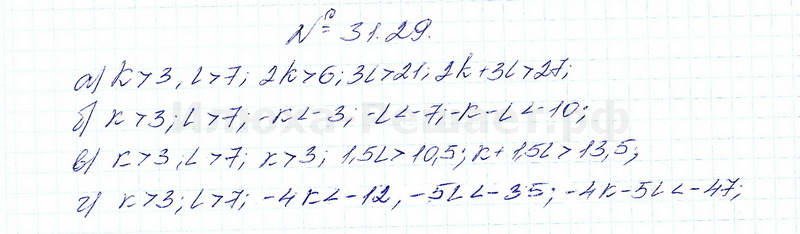 № 31.29.
а) k>3, l>7; 2k>6; 3l>21; 2k+3l>27;
б) k>3; l>7, -k<-3; -l<-7; -k-l<-10;
в) k>3, l>7; k>3; 1,5l>10,5; k+1,5l>13,5;
г) k>3; l>7; -4k<-12, -5l<-35; -4k-5l<-47;
Илюха-Решает.рф